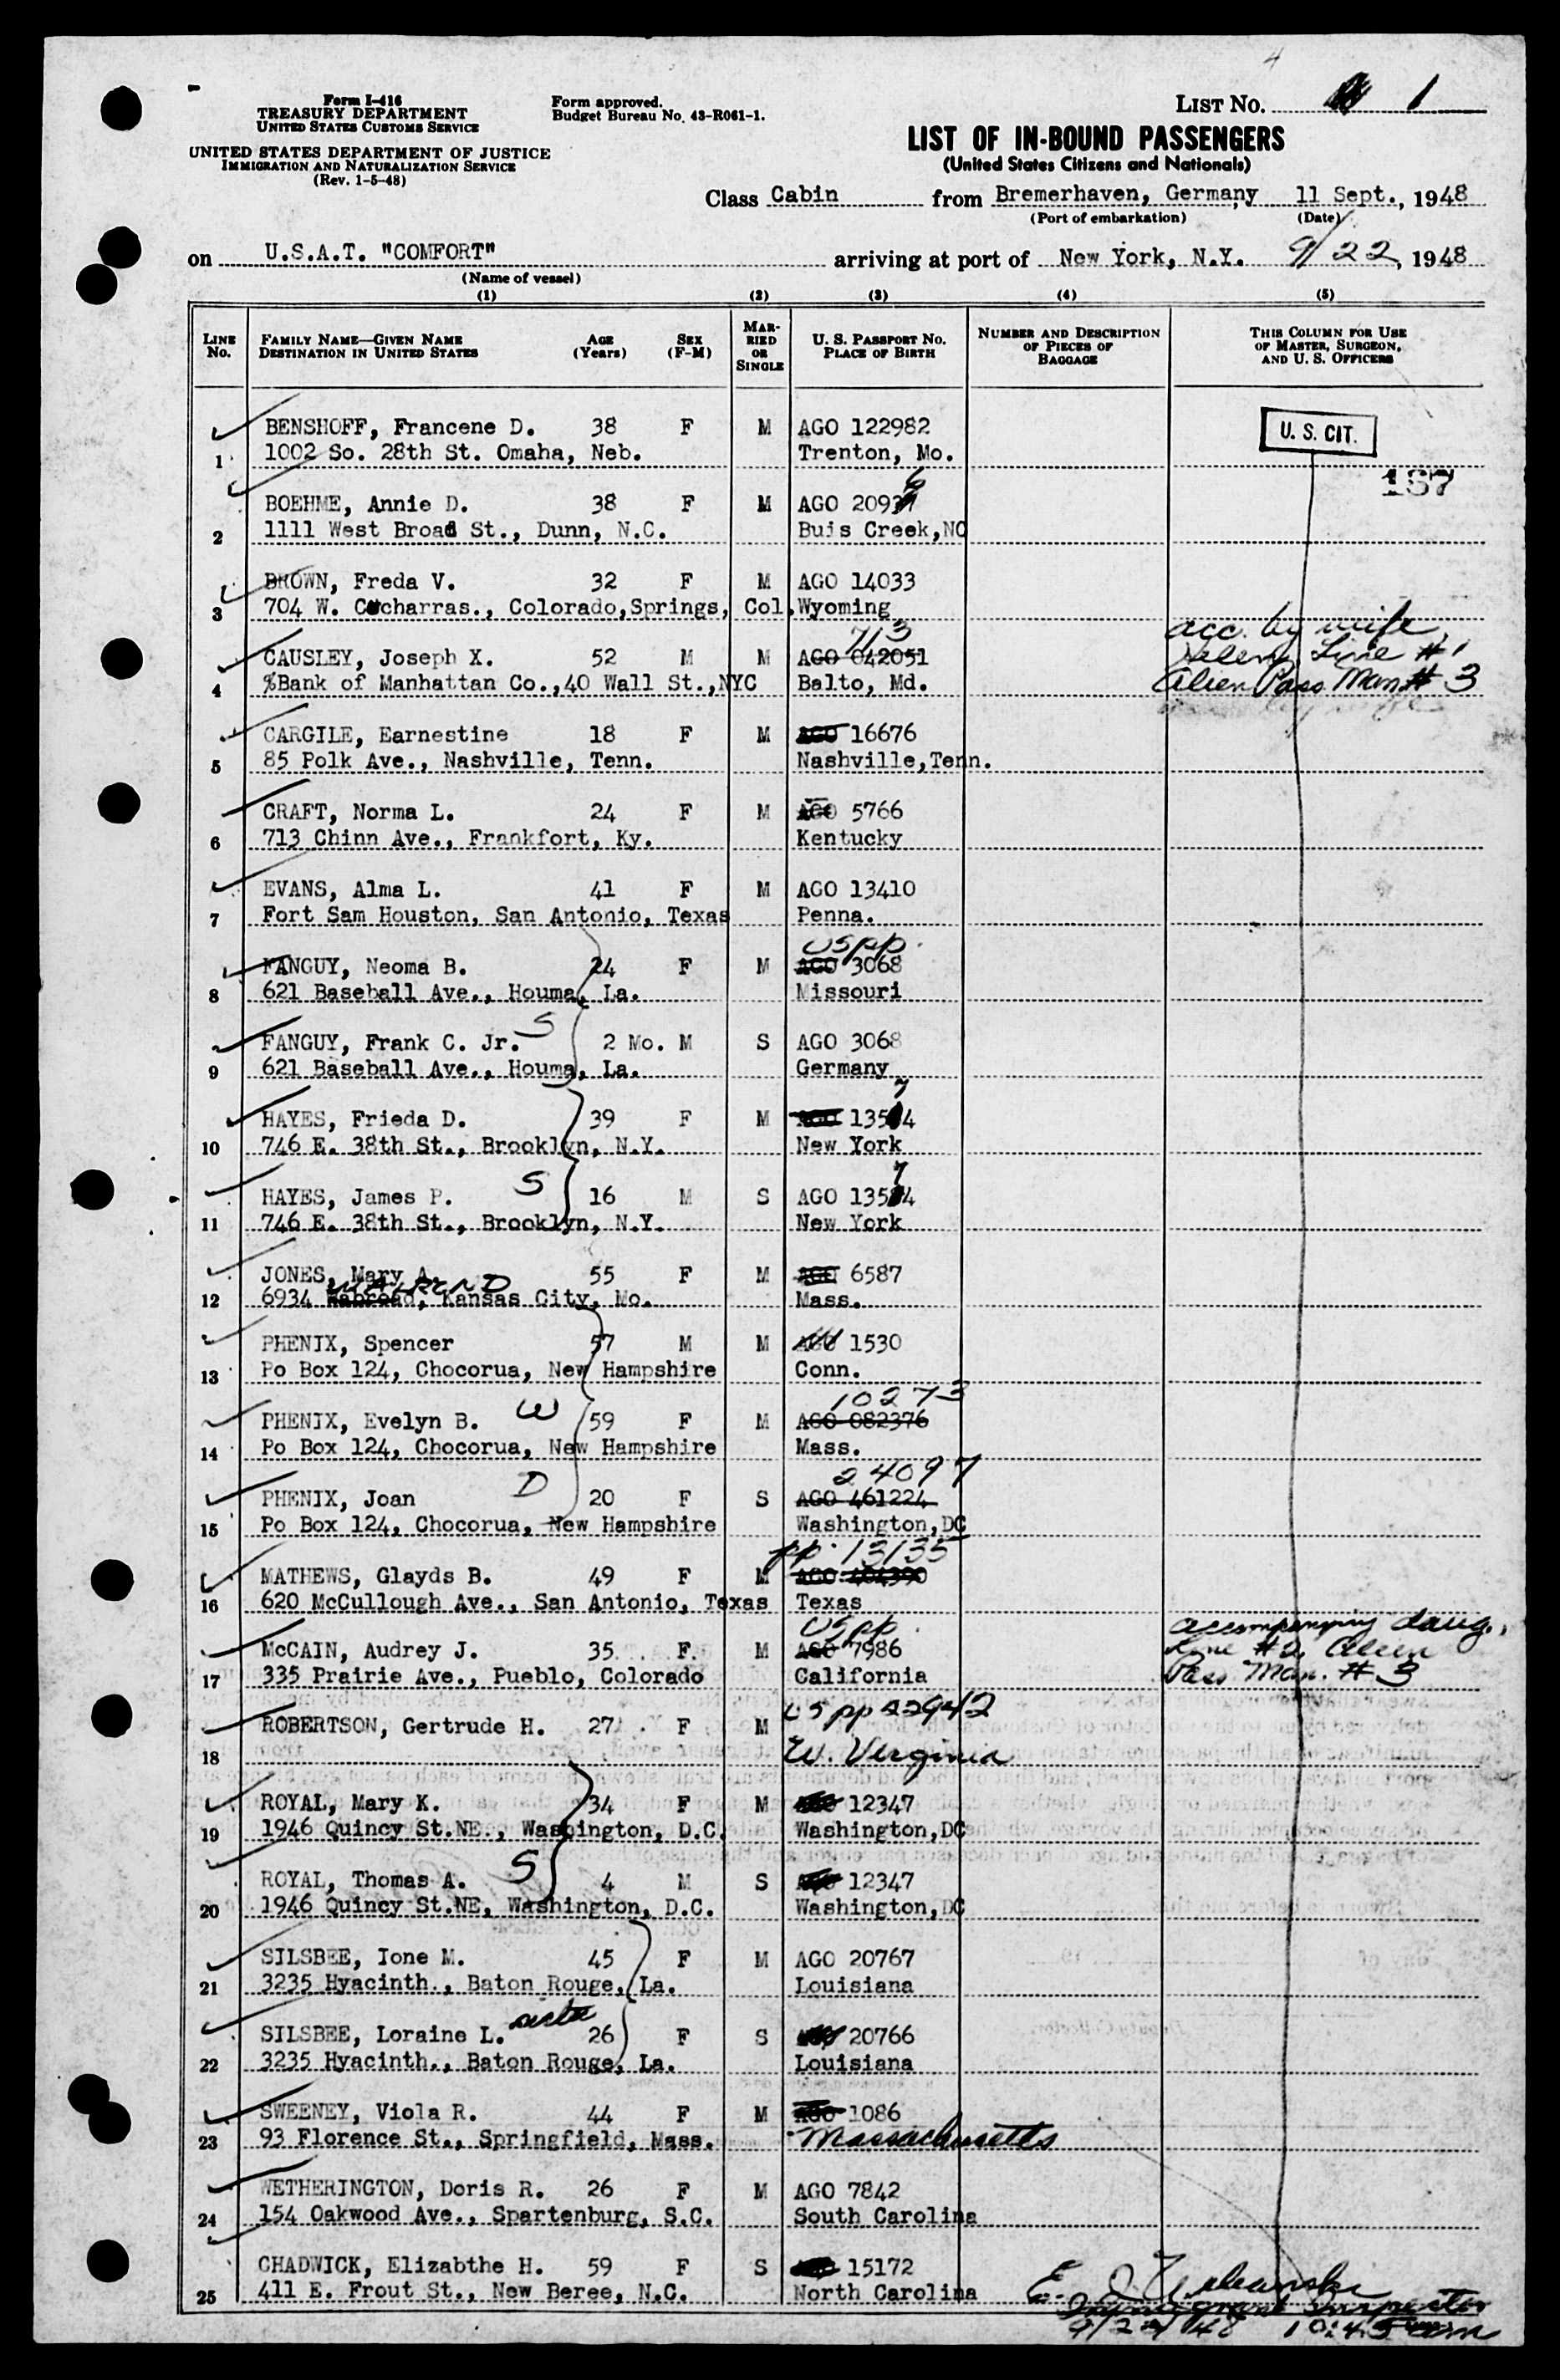 4
Form I-416
TREASURY DEPARTMENT
UNITED STATES CUSTOMS SERVICE
UNITED STATES DEPARTMENT OF JUSTICE
IMMIGRATION AND NATURALIZATION SERVICE
(Rev. 1-5-48)
Form approved.
Budget Bureau No. 43-R061-1.
LIST NO. 1
LIST OF IN-BOUND PASSENGERS
(United States Citizens and Nationals)
Class Cabin from Bremerhaven, Germany, 11 Sept., 1948
(Port of embarkation) (Date)
on U.S.A.T. "COMFORT" arriving at port of New York, N.Y. 9/22, 1948
(Name of vessel)
(1) (2) (3) (4) (5)
LINE No. FAMILY NAME—GIVEN NAME DESTINATION IN UNITED STATES AGE (Years) SEX (F-M) MARRIED OR SINGLE U. S. PASSPORT NO. PLACE OF BIRTH NUMBER AND DESCRIPTION OF PIECES OF BAGGAGE THIS COLUMN FOR USE OF MASTER, SURGEON, AND U. S. OFFICERS
BENSHOFF, Francene D. 38 F M AGO 122982 U. S. CIT.
1 1002 So. 28th St. Omaha, Neb. Trenton, Mo.
187
BOEHME, Annie D. 38 F M AGO 2093 6
2 1111 West Broad St., Dunn, N.C. Buis Creek,NC
BROWN, Freda V. 32 F M AGO 14033
3 704 W. Cucharras., Colorado,Springs, Col. Wyoming
713 acc. by wife,
CAUSLEY, Joseph X. 52 M M AGO 042051 Helen, Line #1
4 %Bank of Manhattan Co.,40 Wall St.,NYC Balto, Md. Alien Pass Man # 3
CARGILE, Earnestine 18 F M AGO 16676
5 85 Polk Ave., Nashville, Tenn. Nashville,Tenn.
CRAFT, Norma L. 24 F M AGO 5766
6 713 Chinn Ave., Frankfort, Ky. Kentucky
EVANS, Alma L. 41 F M AGO 13410
7 Fort Sam Houston, San Antonio, Texas Penna.
US pp.
FANGUY, Neoma B. 24 F M AGO 3068
8 621 Baseball Ave., Houma, La. Missouri
FANGUY, Frank C. Jr. S 2 Mo. M S AGO 3068
9 621 Baseball Ave., Houma, La. Germany
7
HAYES, Frieda D. 39 F M AGO 135 4
10 746 E. 38th St., Brooklyn, N.Y. New York
7
HAYES, James P. S 16 M S AGO 135 4
11 746 E. 38th St., Brooklyn, N.Y. New York
JONES, Mary A. 55 F M AGO 6587
12 6934 Kansas City, Mo. Mass.
PHENIX, Spencer 57 M M AGO 1530
13 Po Box 124, Chocorua, New Hampshire Conn.
10273
PHENIX, Evelyn B. W 59 F M AGO 082376
14 Po Box 124, Chocorua, New Hampshire Mass.
24097
PHENIX, Joan D 20 F S AGO 461224
15 Po Box 124, Chocorua, New Hampshire Washington,DC
pp. 13135
MATHEWS, Glayds B. 49 F M AGO 404390
16 620 McCullough Ave., San Antonio, Texas Texas
US pp. accompanying daug.,
McCAIN, Audrey J. 35 F. M AGO 7986 Line #2, Alien
17 335 Prairie Ave., Pueblo, Colorado California Pass Man. # 3
ROBERTSON, Gertrude H. 27 F M US pp 22942
18 W. Virginia
ROYAL, Mary K. 34 F M 12347
19 1946 Quincy St.NE., Washington, D.C. Washington,DC
ROYAL, Thomas A. S 4 M S 12347
20 1946 Quincy St.NE, Washington, D.C. Washington,DC
SILSBEE, Ione M. 45 F M AGO 20767
21 3235 Hyacinth., Baton Rouge, La. Louisiana
SILSBEE, Loraine L. 26 F S 20766
22 3235 Hyacinth., Baton Rouge, La. Louisiana
SWEENEY, Viola R. 44 F M AGO 1086
23 93 Florence St., Springfield, Mass. Massachusetts
WETHERINGTON, Doris R. 26 F M AGO 7842
24 154 Oakwood Ave., Spartenburg, S.C. South Carolina
CHADWICK, Elizabthe H. 59 F S 15172
25 411 E. Frout St., New Beree, N.C. North Carolina
Immigrant Inspector
10:45 am